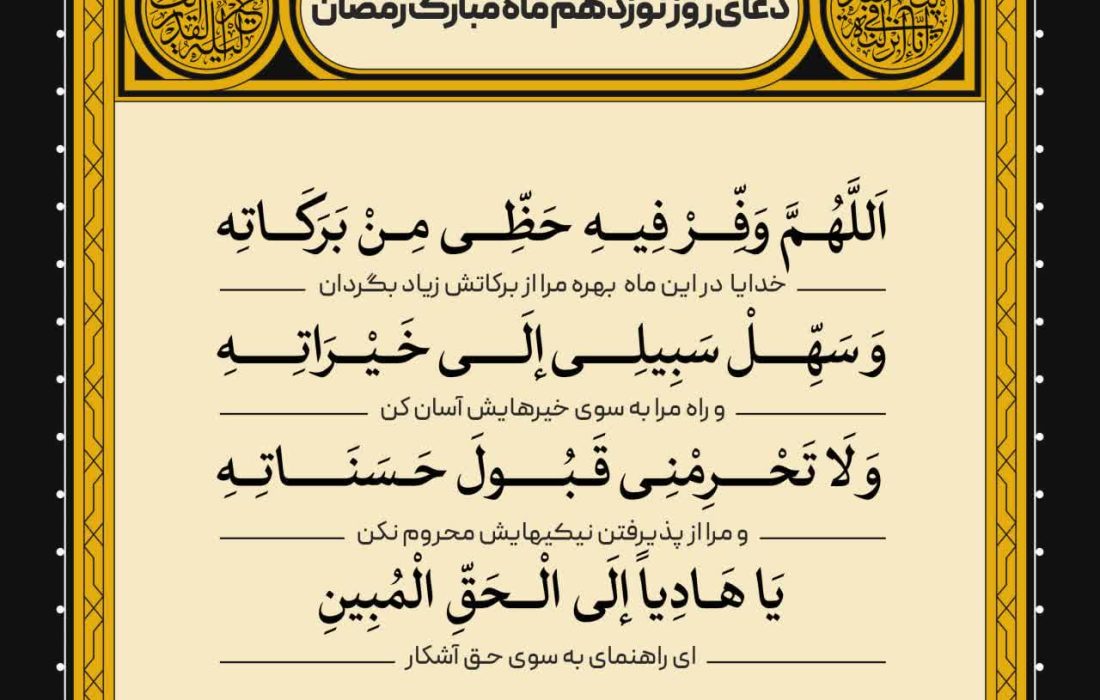 دعای روز نوزدهم ماه مبارک رمضان
اَللَّهُمَّ وَفِّرْ فِيهِ حَظِّي مِنْ بَرَكَاتِهِ
خدایا در این ماه بهره مرا از برکاتش زیاد بگردان
وَ سَهِّلْ سَبِيلِي إِلَى خَيْرَاتِهِ
و راه مرا به سوی خیرهایش آسان کن
وَلَا تَحْرِمْنِي قَبُولَ حَسَنَاتِهِ
و مرا از پذیرفتن نیکیهایش محروم نکن
يَا هَادِياً إِلَى الْحَقِّ الْمُبِينِ
ای راهنمای به سوی حق آشکار